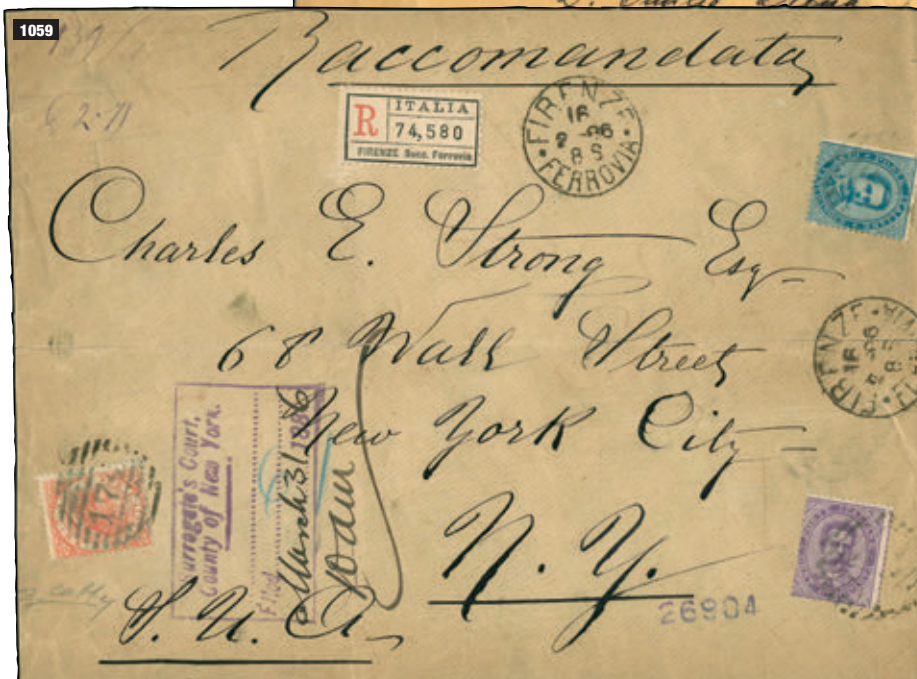 1059
Raccomandata
R
ITALIA
74,580
FIRENZE Succ. Ferrovia
FIRENZE
16
FERROVIA
8 S
Charles E. Strong Esq
68 Wall Street
New York City
N. Y.
S. U. A.
Surrogate's Court,
County of New York.
Filed March 31 1886
FIRENZE
16
26904